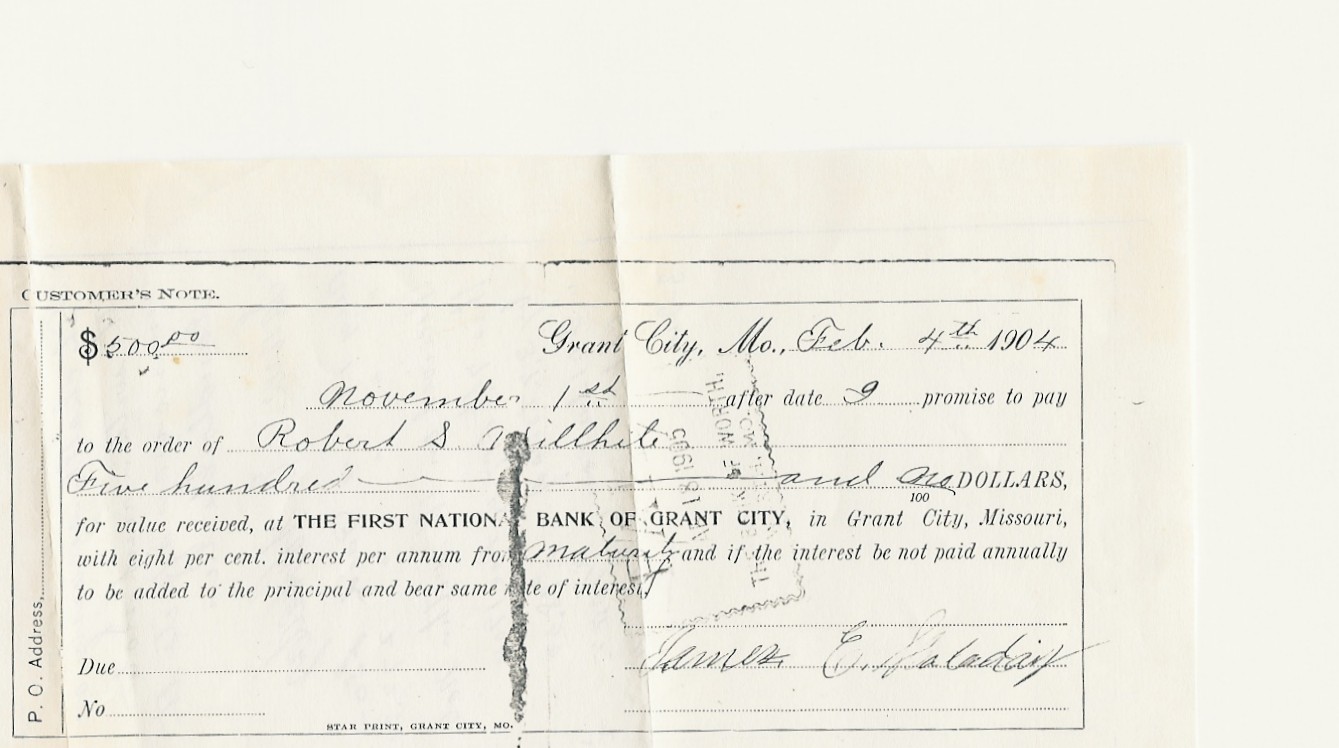 CUSTOMER'S NOTE.
$500.00 Grant City, Mo., Feb. 4th 1904
November 1st after date I promise to pay
to the order of Robert S. Willhite
Five hundred and no/100 DOLLARS,
for value received, at THE FIRST NATIONAL BANK OF GRANT CITY, in Grant City, Missouri,
with eight per cent. interest per annum from maturity and if the interest be not paid annually
to be added to the principal and bear same rate of interest,
James E.
Due
No
STAR PRINT, GRANT CITY, MO.
P. O. Address,